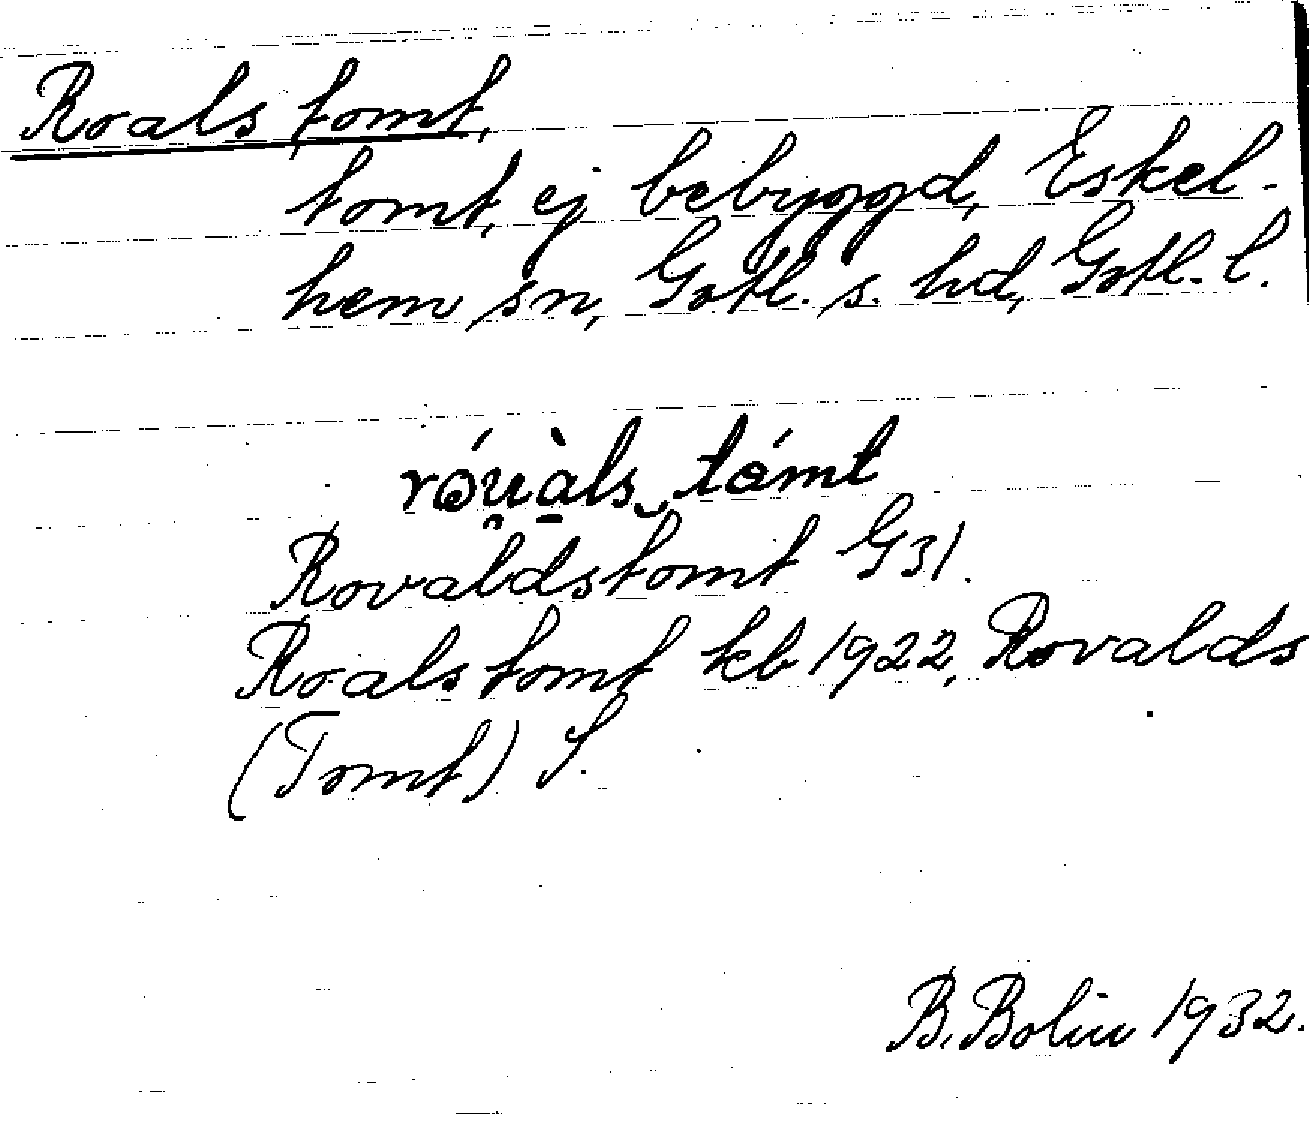 Roals tomt,
tomt, ej bebyggd, Eskel-
hem sn, Gotl. s. hd, Gotl. l.
róu̯àls‿tómt
Rovaldstomt G31.
Roalstomt kb 1922, Rovalds
(Tomt) S.
B. Bolin 1932.